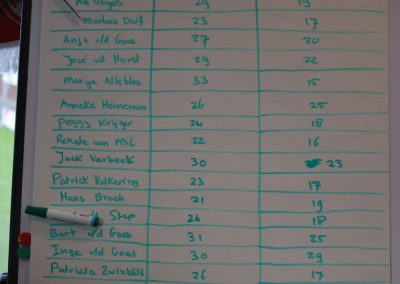 An Vogels 29 19
Marloes Duif 23 17
Anja v/d Goes 27 20
José vd Horst 29 22
Marga Alleblas 33 15
Anneke Heineman 26 25
Peggy Krijger 24 18
Renate van Mil 22 16
Jack Verbeek 30 23
Patrick Volkering 23 17
Hans Broch 21 19
Stap 24 18
Bart v/d Goes 31 25
Inge v/d Goes 30 29
Patricia Zwinkels 26 17